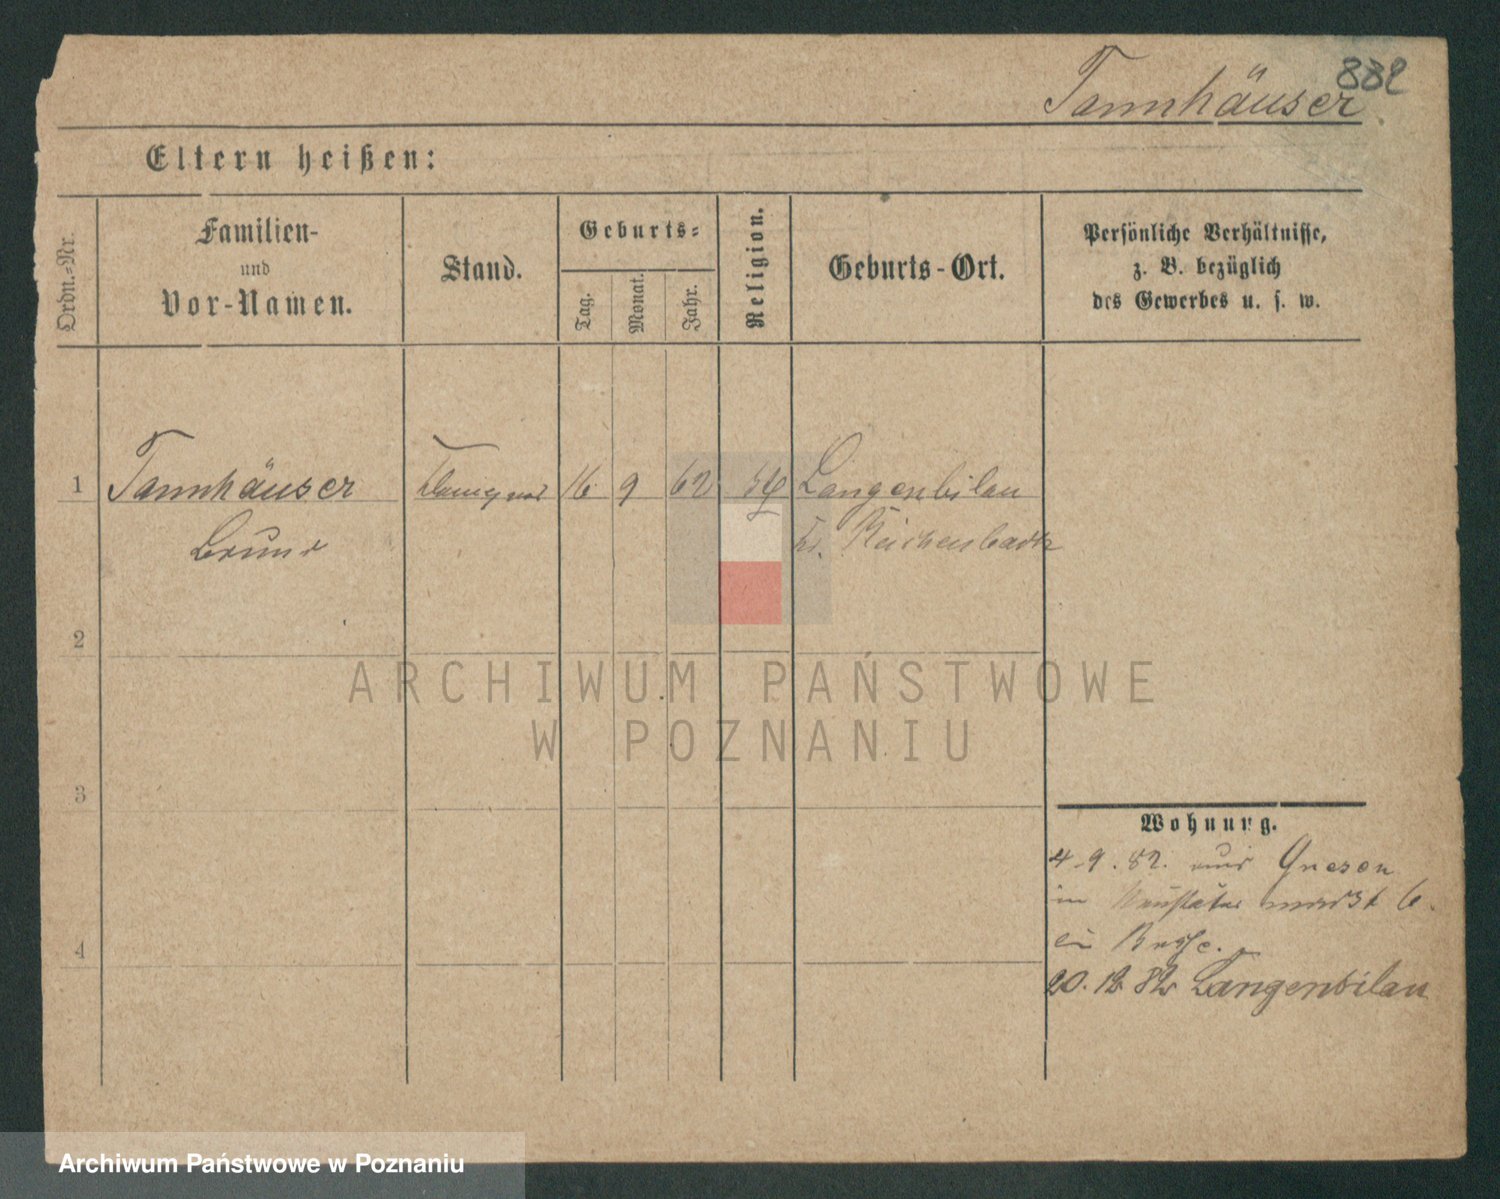 882
Tannhäuser
Eltern heißen:
Ordn.-Nr.
Familien-
und
Vor-Namen.
Stand.
Geburts-
Tag.
Monat.
Jahr.
Religion.
Geburts-Ort.
Persönliche Verhältnisse,
z. B. bezüglich
des Gewerbes u. s. w.
1 Tannhäuser 16 9 62 Langenbilau
Bruno Kr. Reichenbach
2
3
4
Wohnung.
4.9.82. aus Gnesen
in markt 6.
bei
20.12 82 Langenbilau
ARCHIWUM PAŃSTWOWE
W POZNANIU
Archiwum Państwowe w Poznaniu